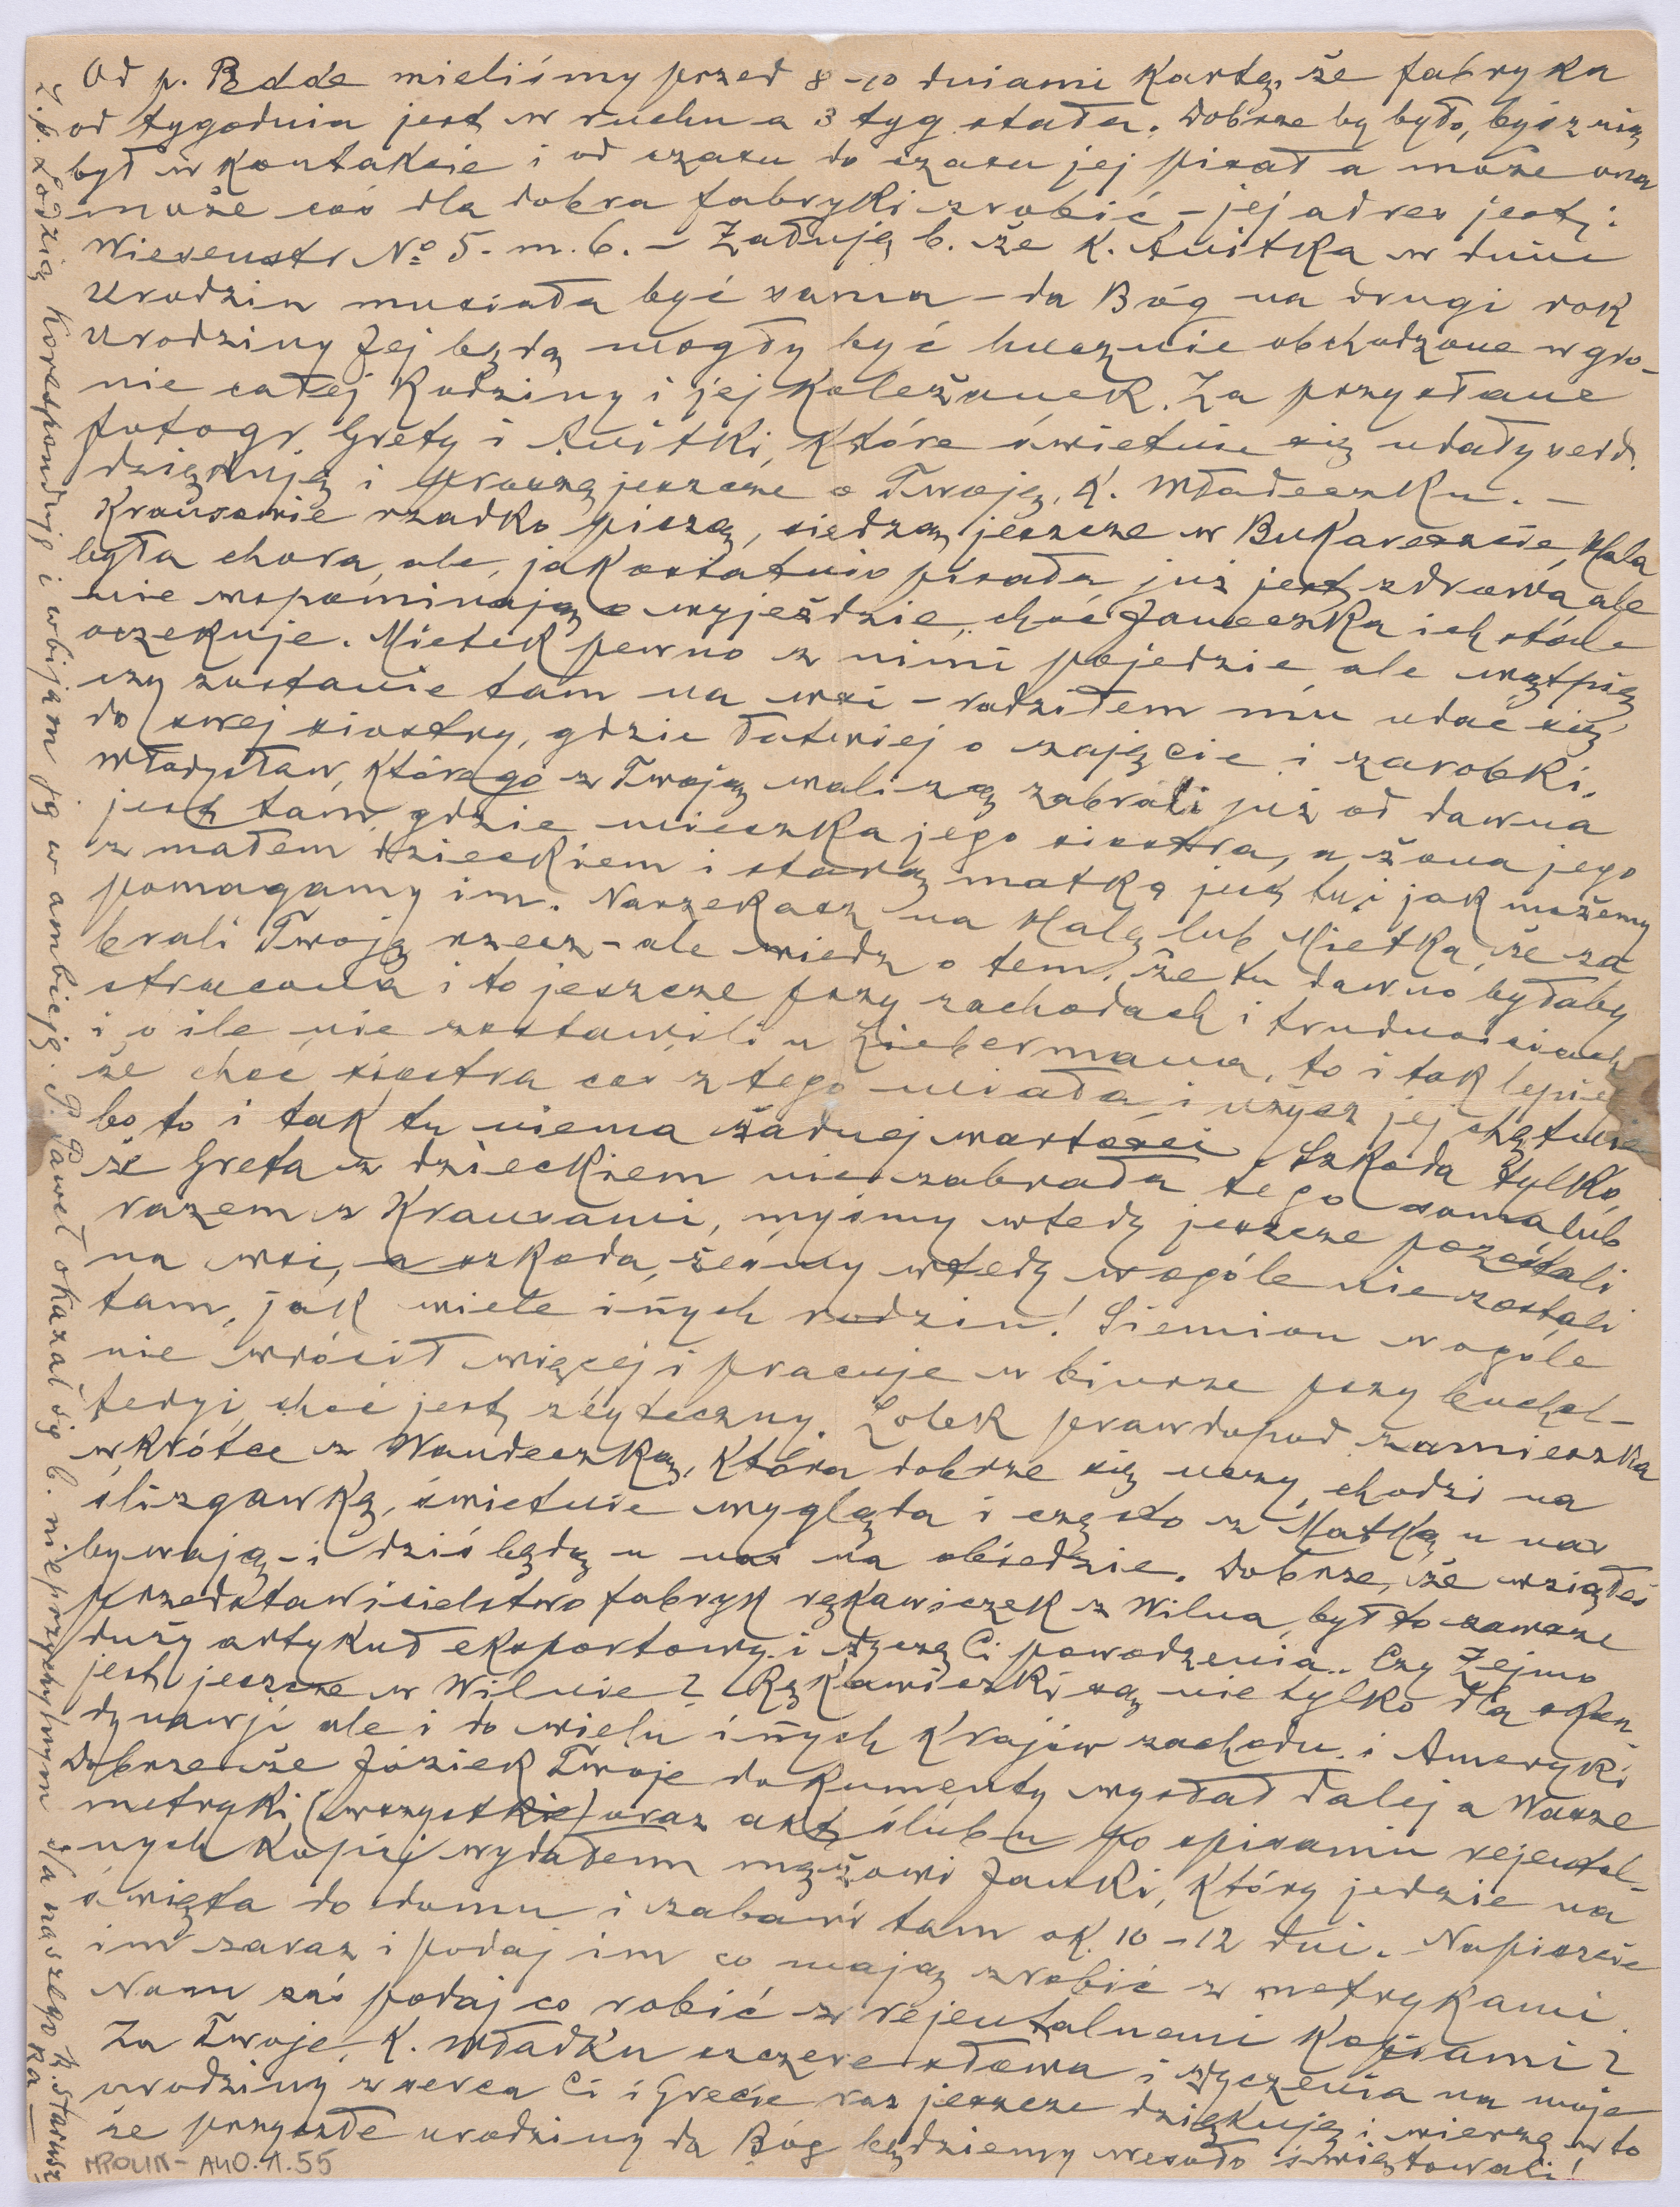 Od p. Bdde mieliśmy przed 8-10 dniami kartę, że fabryka
od tygodnia jest w ruchu a 3 tyg. stała. Dobrze by było, byś z nią
był w kontakcie i od czasu do czasu jej pisał a może ona
może coś dla dobra fabryki zrobić – jej adres jest:
Wiesenstr № 5. m. 6. – Żałuję b. że k. Anitka w dniu
urodzin musiała być sama – da Bóg na drugi rok
urodziny Jej będą mogły być hucznie obchodzone w gro-
nie całej Rodziny i jej koleżanek. Za przysłane
fotogr. Grety i Anitki, które świetnie się udały serd.
dziękuję i proszę jeszcze o Twoją, k. Władeczku. –
Krausowie rzadko piszą, siedzą jeszcze w Bukareszcie, Hala
była chora, ale, jak ostatnio pisała już jest zdrowa, ale
nie wspominają o wyjeździe, choć Janeczka ich stale
oczekuje. Mietek pewno z nimi pojedzie, ale wątpię
czy zostanie tam na wsi – radziłem mu udać się
do swej siostry, gdzie łatwiej o zajęcie i zarobki.
Władysław, którego z Twoją walizą zabrali już od dawna
jest tam, gdzie mieszka jego siostra, a żona jego
z małem dzieckiem i starą matką jest tu i jak możemy
pomagamy im. Narzekasz na Halę lub Mietka, że za
brali Twoją rzecz – ale wiedz o tem, że tu dawno byłaby
stracona i to jeszcze przy zachodach i trudnościach
i o ile nie zostawili u Liebermana, to i tak lepiej
że choć siostra coś z tego miała i użycz jej chętnie
bo to i tak tu niema żadnej wartości. Szkoda tylko,
że Greta z dzieckiem nie zabrała tego sama lub
razem z Krausami, myśmy wtedy jeszcze pozostali
na wsi, a szkoda, żeśmy wtedy wogóle nie zostali
tam, jak wiele innych rodzin! Siemion wogóle
nie wrócił więcej i pracuje w biurze przy buchal-
terji, choć jest zbyteczny. Lolek prawdopod. zamieszka
wkrótce z Wandeczką, która dobrze się uczy, chodzi na
ślizgawkę, świetnie wygląda i często z Matką u nas
bywają – i dziś będą u nas na obiedzie. Dobrze, że wziąłeś
przedstawicielstwo fabryk rękawiczek z Wilna, był to zawsze
duży artykuł eksportowy i życzę Ci powodzenia. Czy Zejmo
jest jeszcze w Wilnie? Rękawiczki są nie tylko dla Skan-
dynawji ale i do wielu innych krajów zachodu i Ameryki
Dobrze że Józiek Twoje dokumenty wysłał dalej a Wasze
metryki (wszystkie) oraz akt ślubu po spisaniu rejental-
nych kopij wydałem mężowi Janki, który jedzie na
święta do domu i zabawi tam ok. 10-12 dni. Napiszcie
im zaraz i podaj im co mają zrobić z metrykami.
Nam zaś podaj co robić z rejentalnemi kopiami?
Za Twoje, k. Władku szczere słowa i życzenia na moje
urodziny z serca Ci i Grecie raz jeszcze dziękuję i wierzę w to
że przyszłe urodziny da Bóg będziemy wesoło świętowali!
Z p. Łodzią koresponduję i wbijam ją w ambicję. P. Paweł okazał się b. nieprzychylnym dla naszego k. Stadusz
ka –
MPOLIN-A40.1.55